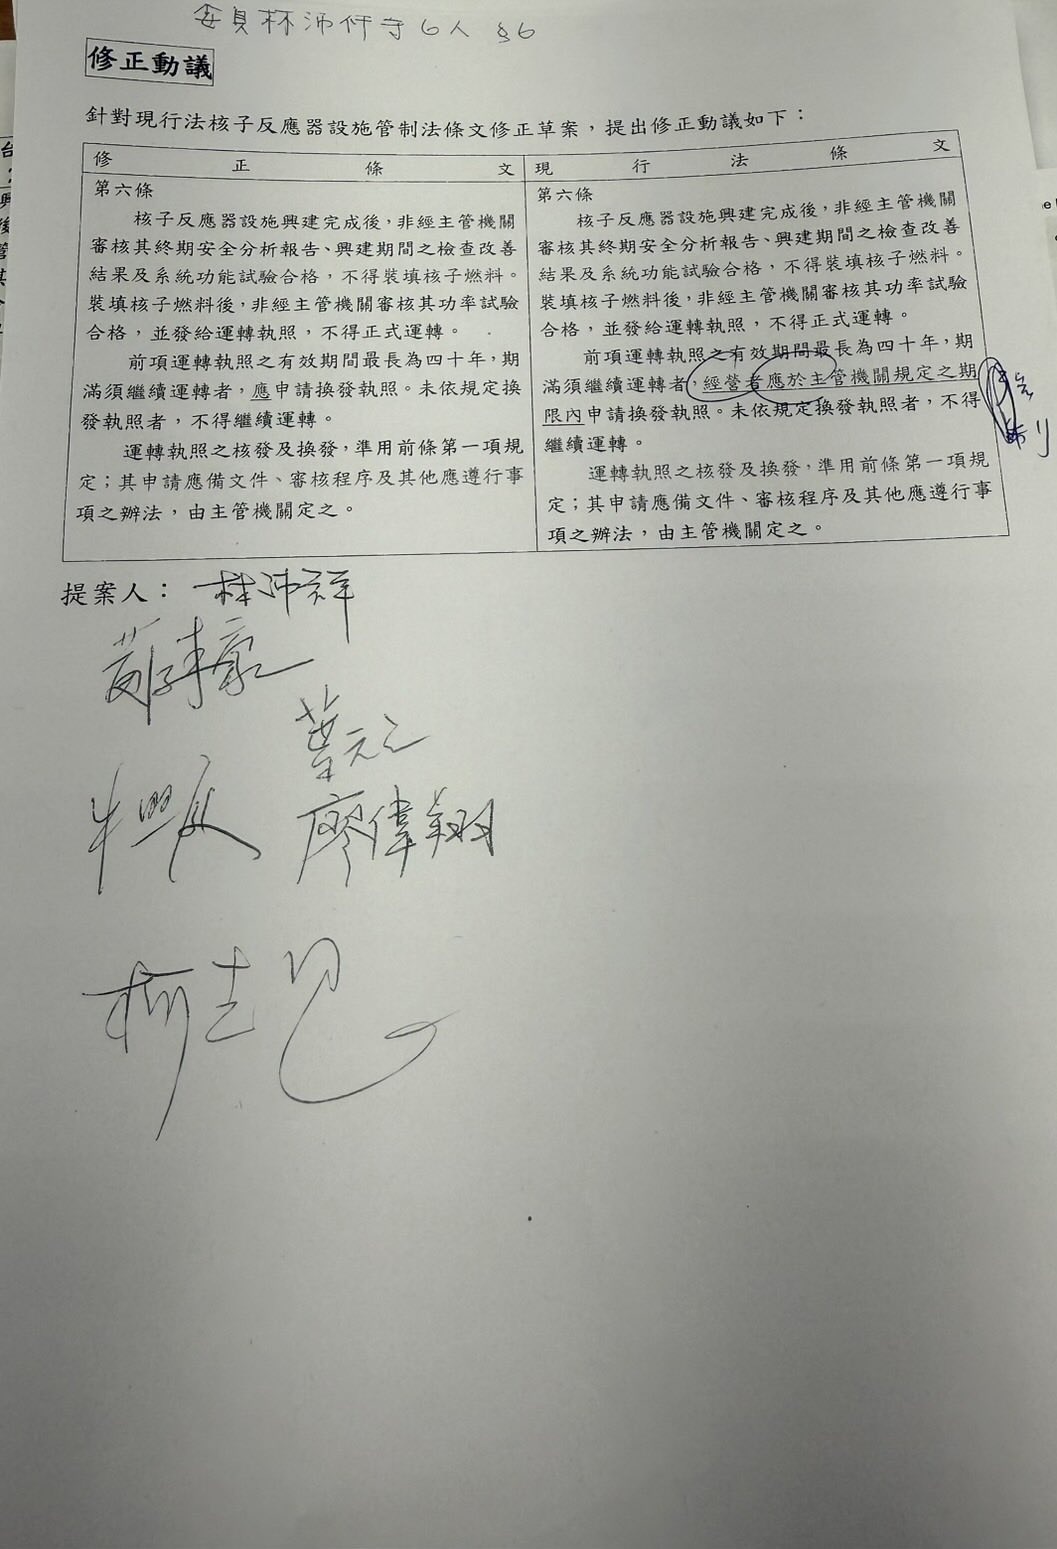 委員林沛祥等6人 §6
修正動議
針對現行法核子反應器設施管制法條文修正草案，提出修正動議如下：
修正條文
第六條
核子反應器設施興建完成後，非經主管機關
審核其終期安全分析報告、興建期間之檢查改善
結果及系統功能試驗合格，不得裝填核子燃料。
裝填核子燃料後，非經主管機關審核其功率試驗
合格，並發給運轉執照，不得正式運轉。
前項運轉執照之有效期間最長為四十年，期
滿須繼續運轉者，應申請換發執照。未依規定換
發執照者，不得繼續運轉。
運轉執照之核發及換發，準用前條第一項規
定；其申請應備文件、審核程序及其他應遵行事
項之辦法，由主管機關定之。
現行法條文
第六條
核子反應器設施興建完成後，非經主管機關
審核其終期安全分析報告、興建期間之檢查改善
結果及系統功能試驗合格，不得裝填核子燃料。
裝填核子燃料後，非經主管機關審核其功率試驗
合格，並發給運轉執照，不得正式運轉。
前項運轉執照之有效期間最長為四十年，期
滿須繼續運轉者，經營者應於主管機關規定之期
限內申請換發執照。未依規定換發執照者，不得
繼續運轉。
運轉執照之核發及換發，準用前條第一項規
定；其申請應備文件、審核程序及其他應遵行事
項之辦法，由主管機關定之。
提案人：林沛祥
葉元之
牛煦庭
廖偉翔
柯志恩